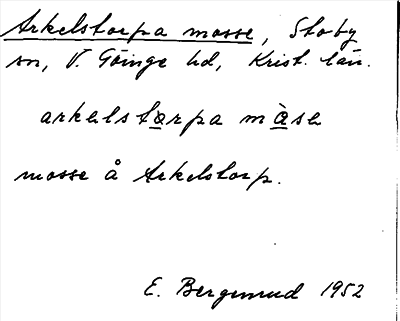 Arkelstorpa mosse, Stoby
sn, V. Göinge hd, Krist. län.
arkəlstorpa m̀åsə
mosse å Arkelstorp.
E. Bergenrud 1952